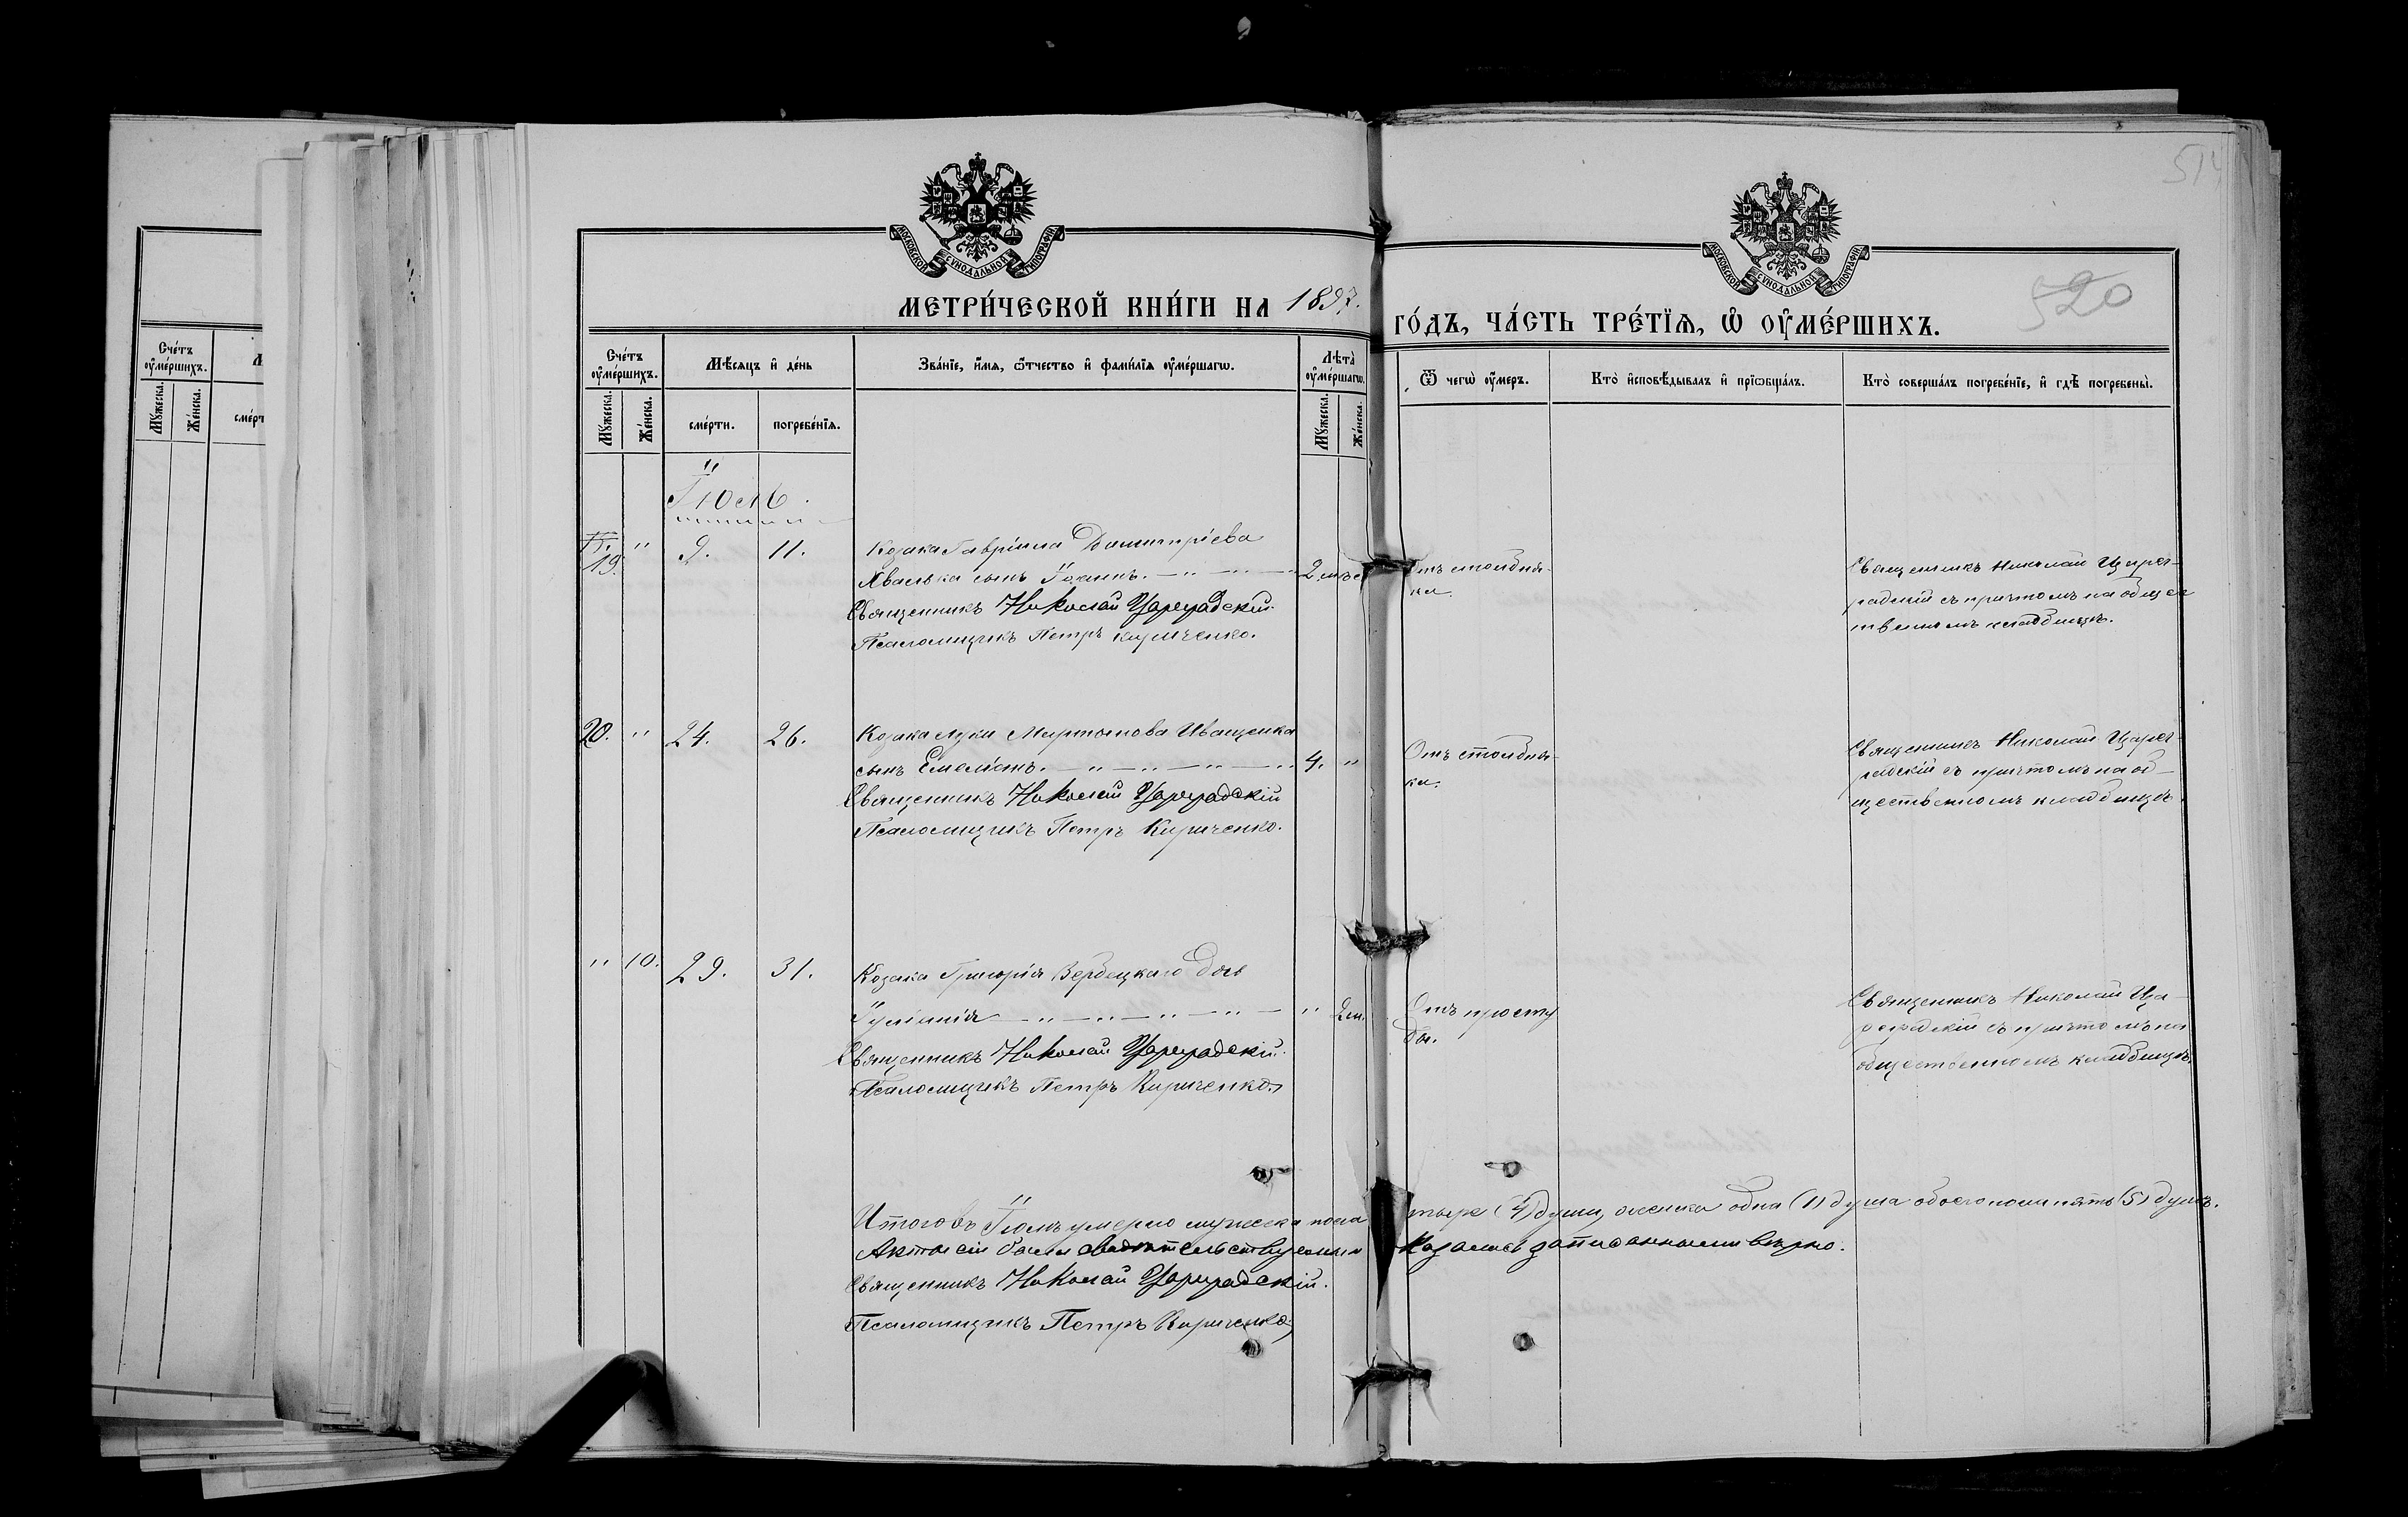 514
МОСКОВСКОЙ СУНОДАЛЬНОЙ ТИПОГРАФІИ
МОСКОВСКОЙ СУНОДАЛЬНОЙ ТИПОГРАФІИ
520
МЕТРИ́ЧЕСКОЙ КНИ́ГИ НА 1897. ГО́ДЪ, ЧА́СТЬ ТРЕ́ТЇѦ, Ѡ҆ ОУ҆МЕ́РШИХЪ.
Сче́тъ оу҆ме́ршихъ.
Мꙋ́жеска. Же́нска.
сме́рт
Сче́тъ оу҆ме́ршихъ.
Мꙋ́жеска. Же́нска.
Мѣ́сяцъ и҆ де́нь
сме́рти. погребе́нїя.
Зва́нїе, и҆́мя, ѻ҆́тчество и҆ фами́лїя оу҆ме́ршагѡ.
Лѣта̀ оу҆ме́ршагѡ.
Мꙋ́жеска. Же́нска.
Ѿ чегѡ̀ оу҆́меръ.
Кто̀ и҆сповѣ́дывалъ и҆ прїѡбща́лъ.
Кто̀ соверша́лъ погребе́нїе, и҆ гдѣ̀ погребены̀.
Іюль.
19. " 9. 11. Козака Гавріила Димитріева
Хвалька сынъ Іоаннъ. 2 мѣс
Отъ столбня-
ка.
Священникъ Николай Цареградскій.
Псаломщикъ Петръ Кириченко.
Священникъ Николай Царег-
радскій съ причтомъ на общес
твенномъ кладбищѣ.
20. " 24. 26. Козака Луки Мартынова Иващенка
сынъ Емеліанъ. 4. "
Отъ столбня-
ка.
Священникъ Николай Цареградскій
Псаломщикъ Петръ Кириченко.
Священникъ Николай Царег-
радскій съ причтомъ на об-
щественномъ кладбищѣ.
" 10. 29. 31. Козака Григорія Вербецкаго дочь
Іуліанія " 2 м.
Отъ просту
ды.
Священникъ Николай Цареградскій.
Псаломщикъ Петръ Кириченко.
Священникъ Николай Ца-
реградскій съ причтомъ на
общественномъ кладбищѣ.
Итого въ Іюлѣ умерло мужеска пола тыре (4) души, женска одна (1) душа обоего пола пять (5) душъ.
Акты сіи были свидѣтельствуемы и казались записанными вѣрно.
Священникъ Николай Цареградскій.
Псаломщикъ Петръ Кириченко.